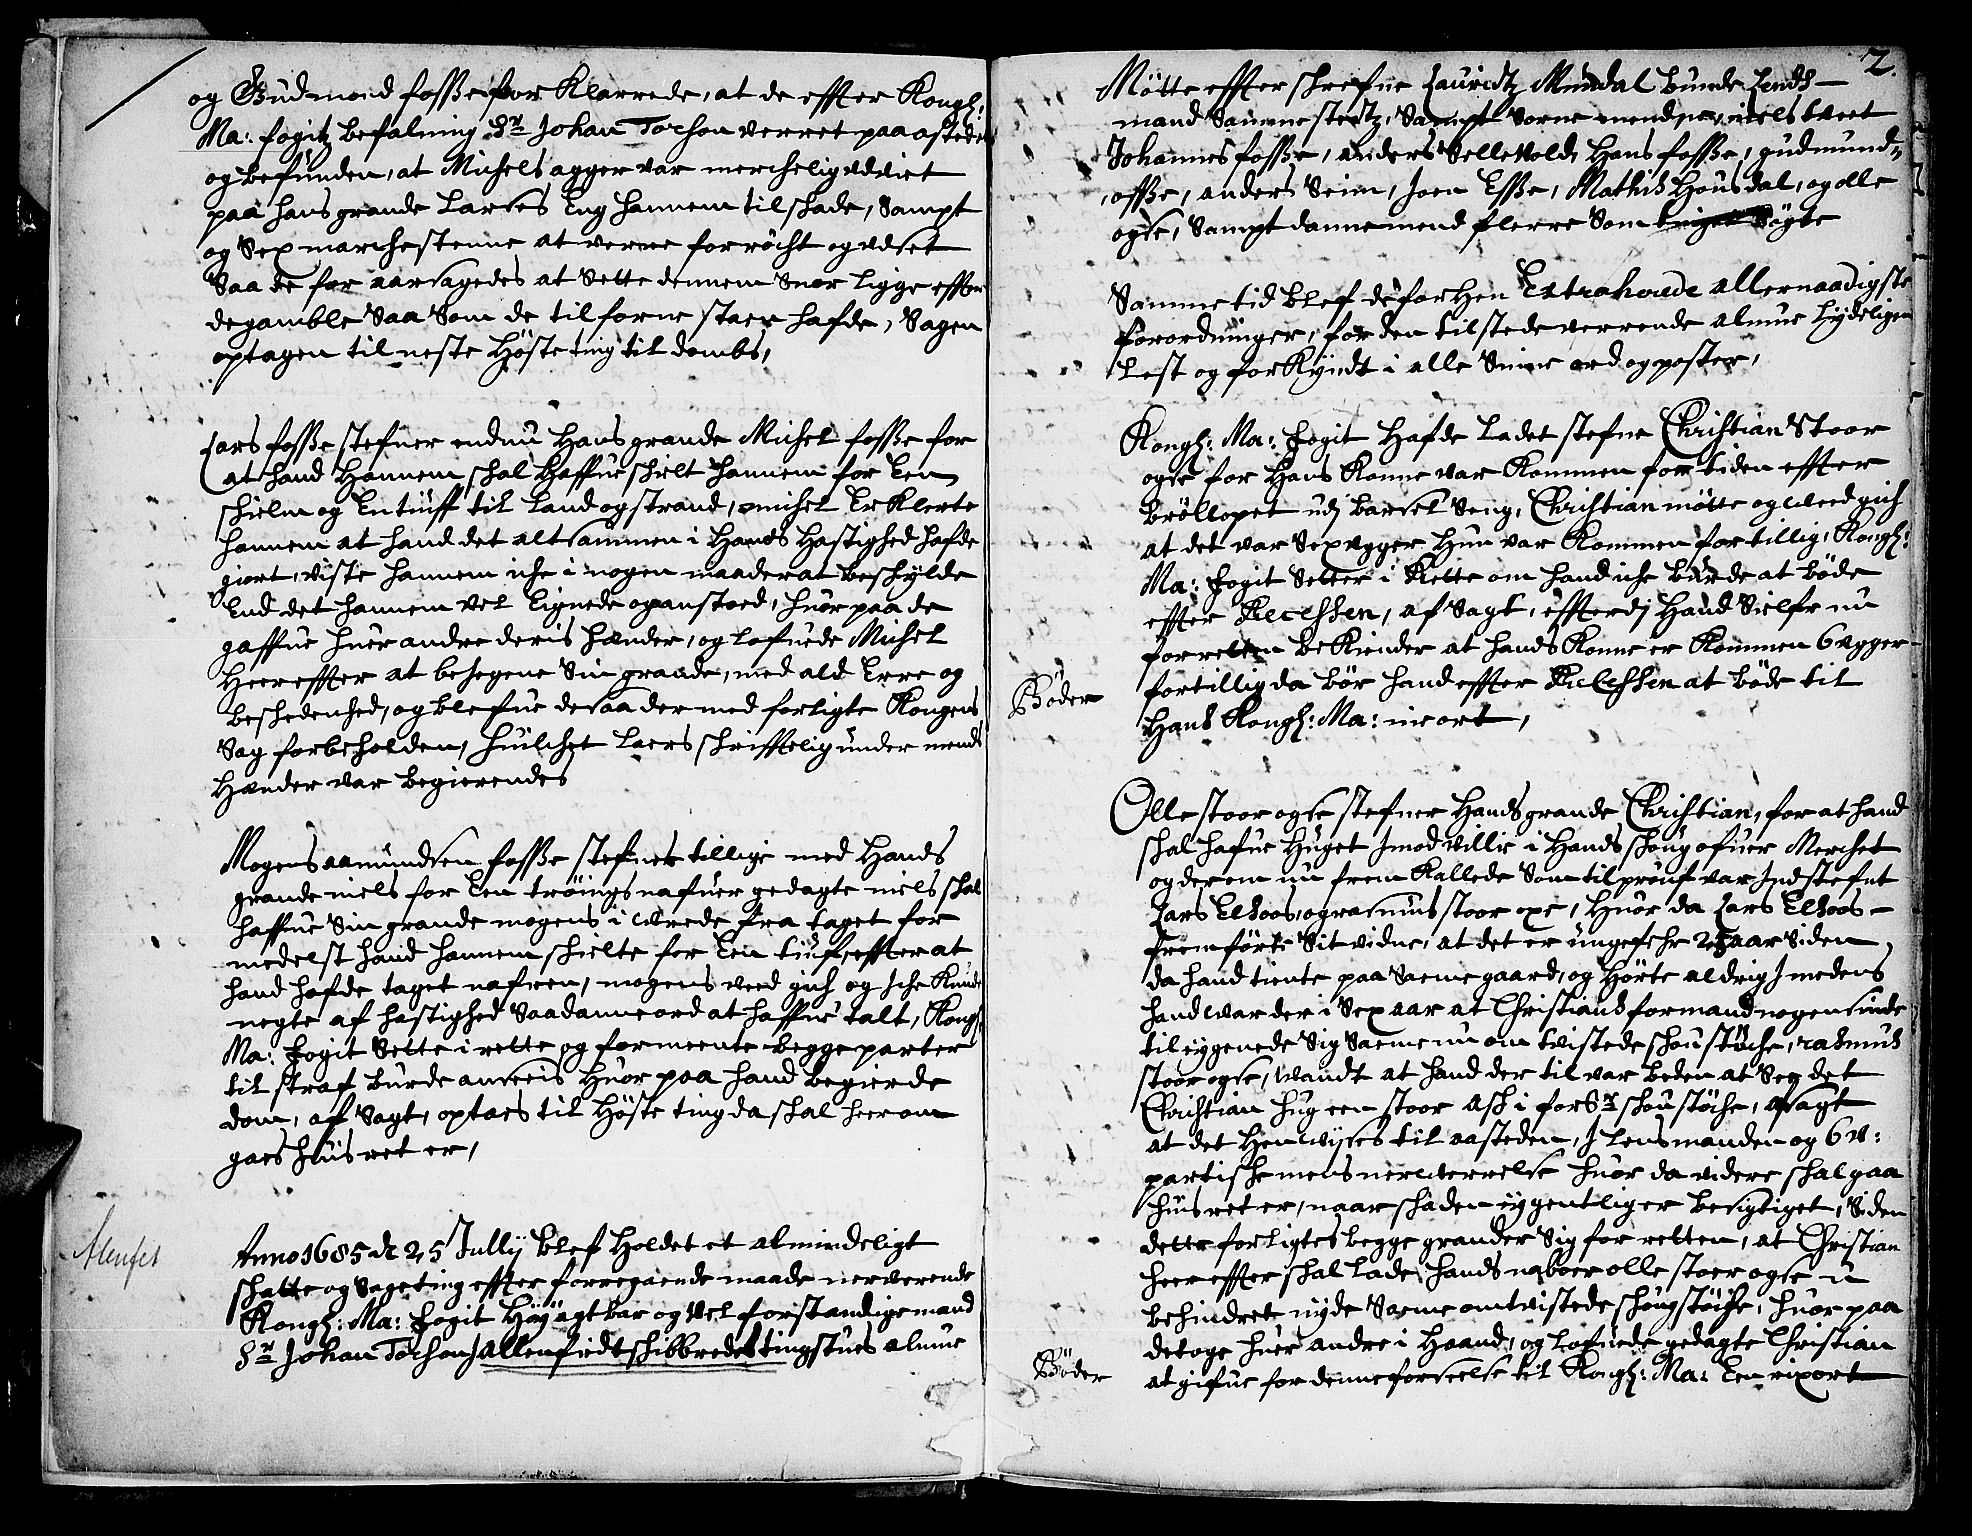 og Gudmond fosse for Klarrede, at de effter Kongl:
Ma: fogitz befalning Sr Johan Torson verret paa asteden
og befunden, at Michels agger var mercheligudviet
paa hans grande Larses Eng hannem til skade, Sampt
og Sex marchestenne at verre forröcht og udset
Saa de for aarsagedes at Sette dennem Snor Ligge effter
de gamble Saa Som de tilforne staen hafde, Sagen
optagen til neste Höste ting til dombs,
Lars fosse stefner endnu Hans grande Michel fosse for
at hand Hannem schal Haffue schielt hannem for Een
schielm og En tiuff til Land og strand, michel Erklerte
hannem at hand det altsammen i Hands Hastighed hafde
giort, viste hannem iche i nogen maader at beschylde
End det hannem vel Lignede og anstoed, huor paa de
gaffue huer andre deris hænder, og lofuede Michel
Heereffter at bejegene Sin grande, med ald Erre og
beschedenhed, og blefue de saa der med forligte Kongens
Sag forbeholden, huilchet Laers schrifftelig under mends
Hænder var begierendes
Mogens aamundsen fosse stefnet tillige med Hands
grande niels for Een tröings nafuer gedagte niels schal
haffue Sin grande mogens i wrede fra taget for
medelst hand hannem schielte for Een tiuf, effter at
hand hafde taget nafren, mogens veed gich og Iche kunde
negte af hastighed Saadanne ord at haffue talt, Kongl:
Ma: fogit Sette i rette og formeente begge parter
til straf burde ansees huor paa hand begierde
dom, af Sagt, optaes til Höste ting da schal heerom
gaes huis ret er,
Alenfit
Anno 1685 d: 25 Jullij blef Holdet et almindeligt
schatte og Sageting effter forregaende maade nerverende
Kongl: Ma: fogit Höyagtbar og Vel forstandige mand
Sr Johan Torson J allenfidt schibbredes tingstues almue
2.
Mötte effter schrefne Lauridtz Mundal bunde Lends-
mand Samme stedtz, Sampt Sorne mend niels tveet
Johannes fosse, anders Sellevold, Hans fosse, gudmund
fosse, anders Seim, Joen Esse, Mathis Housdal, og olle
ogse, Sampt dannemend flerre Som tinget Sögte
Samme tid blef de forhen Extraherede allernaadigste
forordninger, for den tilstede verrende almue Lydeligen
Lest og forkyndt i alle Sinne ord og poster,
Kongl: Ma: fogit Hafde Ladet stefne Christian Stoor
ogse for Hans Konne var Kommen for tiden effter
bröllopet udj barsel Seng, Christian mötte og weedgich
at det var Sex vgger Hun var Kommen for tillig, Kongl:
Ma: fogit Setter i Rette om hand iche burde at böde
effter Recessen, af Sagt, effterdj Hand Sielf nu
for retten bekiender at hands Konne er Kommen 6 vgger
for tillig da bör hand effter Recessen at böde til
Hans Kongl: Ma: ort,
Böder
Olle stoor ogse stefner Hands grande Christian, for at hand
schal hafue Huget Jmod villie i Hands schoug ofuer Merchet
og der om nu frem Kallede Som til prouf var Jndstefnt
Lars Elsoos, og rasmus stoor oxe, Huor da Lars Elsoos-
fremförte Sit vidne, at det er ungefehr 25 aar Siden,
da hand tiente paa Saeme gaard, og Hörte aldrig Jmedens
hand war der i Sex aar at Christians formand nogensinde
til eygenede Sig Saeme nu om tvistede schou stöche, rasmus
stoor ogse, wandt at hand der til var beden at See det
Christian hug een stoor Ask i forSr schou stöche, afsagt
at det Henwises til aasteden, J Lensmanden og 6 u:
partiske mens nerwerrelse huor da videre schal gaa
huis ret er, naar schaden eygentliger besigtiget, Siden
dette forligtes begge grander Sig for retten, at Christian
heer effter schal Lade hands naboer olle stoer ogse u
behindret nyde Saeme omtvistede schougstöche, huor paa
de toge huer andre i Haand, og Lofuede gedagte Christian
at gifue for denne forseelse til Kongl: Ma: Een rixort
Böder